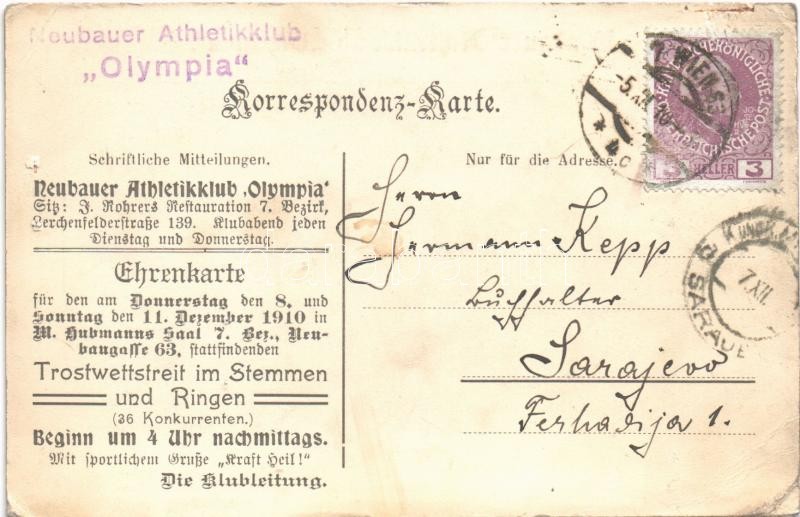 Neubauer Athletikklub
„Olympia“
Korrespondenz-Karte.
Schriftliche Mitteilungen.
Nur für die Adresse.
Neubauer Athletikklub ‚Olympia‘
Sitz: J. Rohrers Restauration 7. Bezirk,
Lerchenfelderstraße 139. Klubabend jeden
Dienstag und Donnerstag.
Ehrenkarte
für den am Donnerstag den 8. und
Sonntag den 11. Dezember 1910 in
M. Hubmanns Saal 7. Bez., Neu-
baugasse 63, stattfindenden
Trostwettstreit im Stemmen
und Ringen
(36 Konkurrenten.)
Beginn um 4 Uhr nachmittags.
Mit sportlichem Gruße „Kraft Heil!“
Die Klubleitung.
Herrn
Hermann Kepp
Buchhalter
Sarajevo
Ferhadija 1.
WIEN
3 HELLER 3
7.XII.
SARAJE